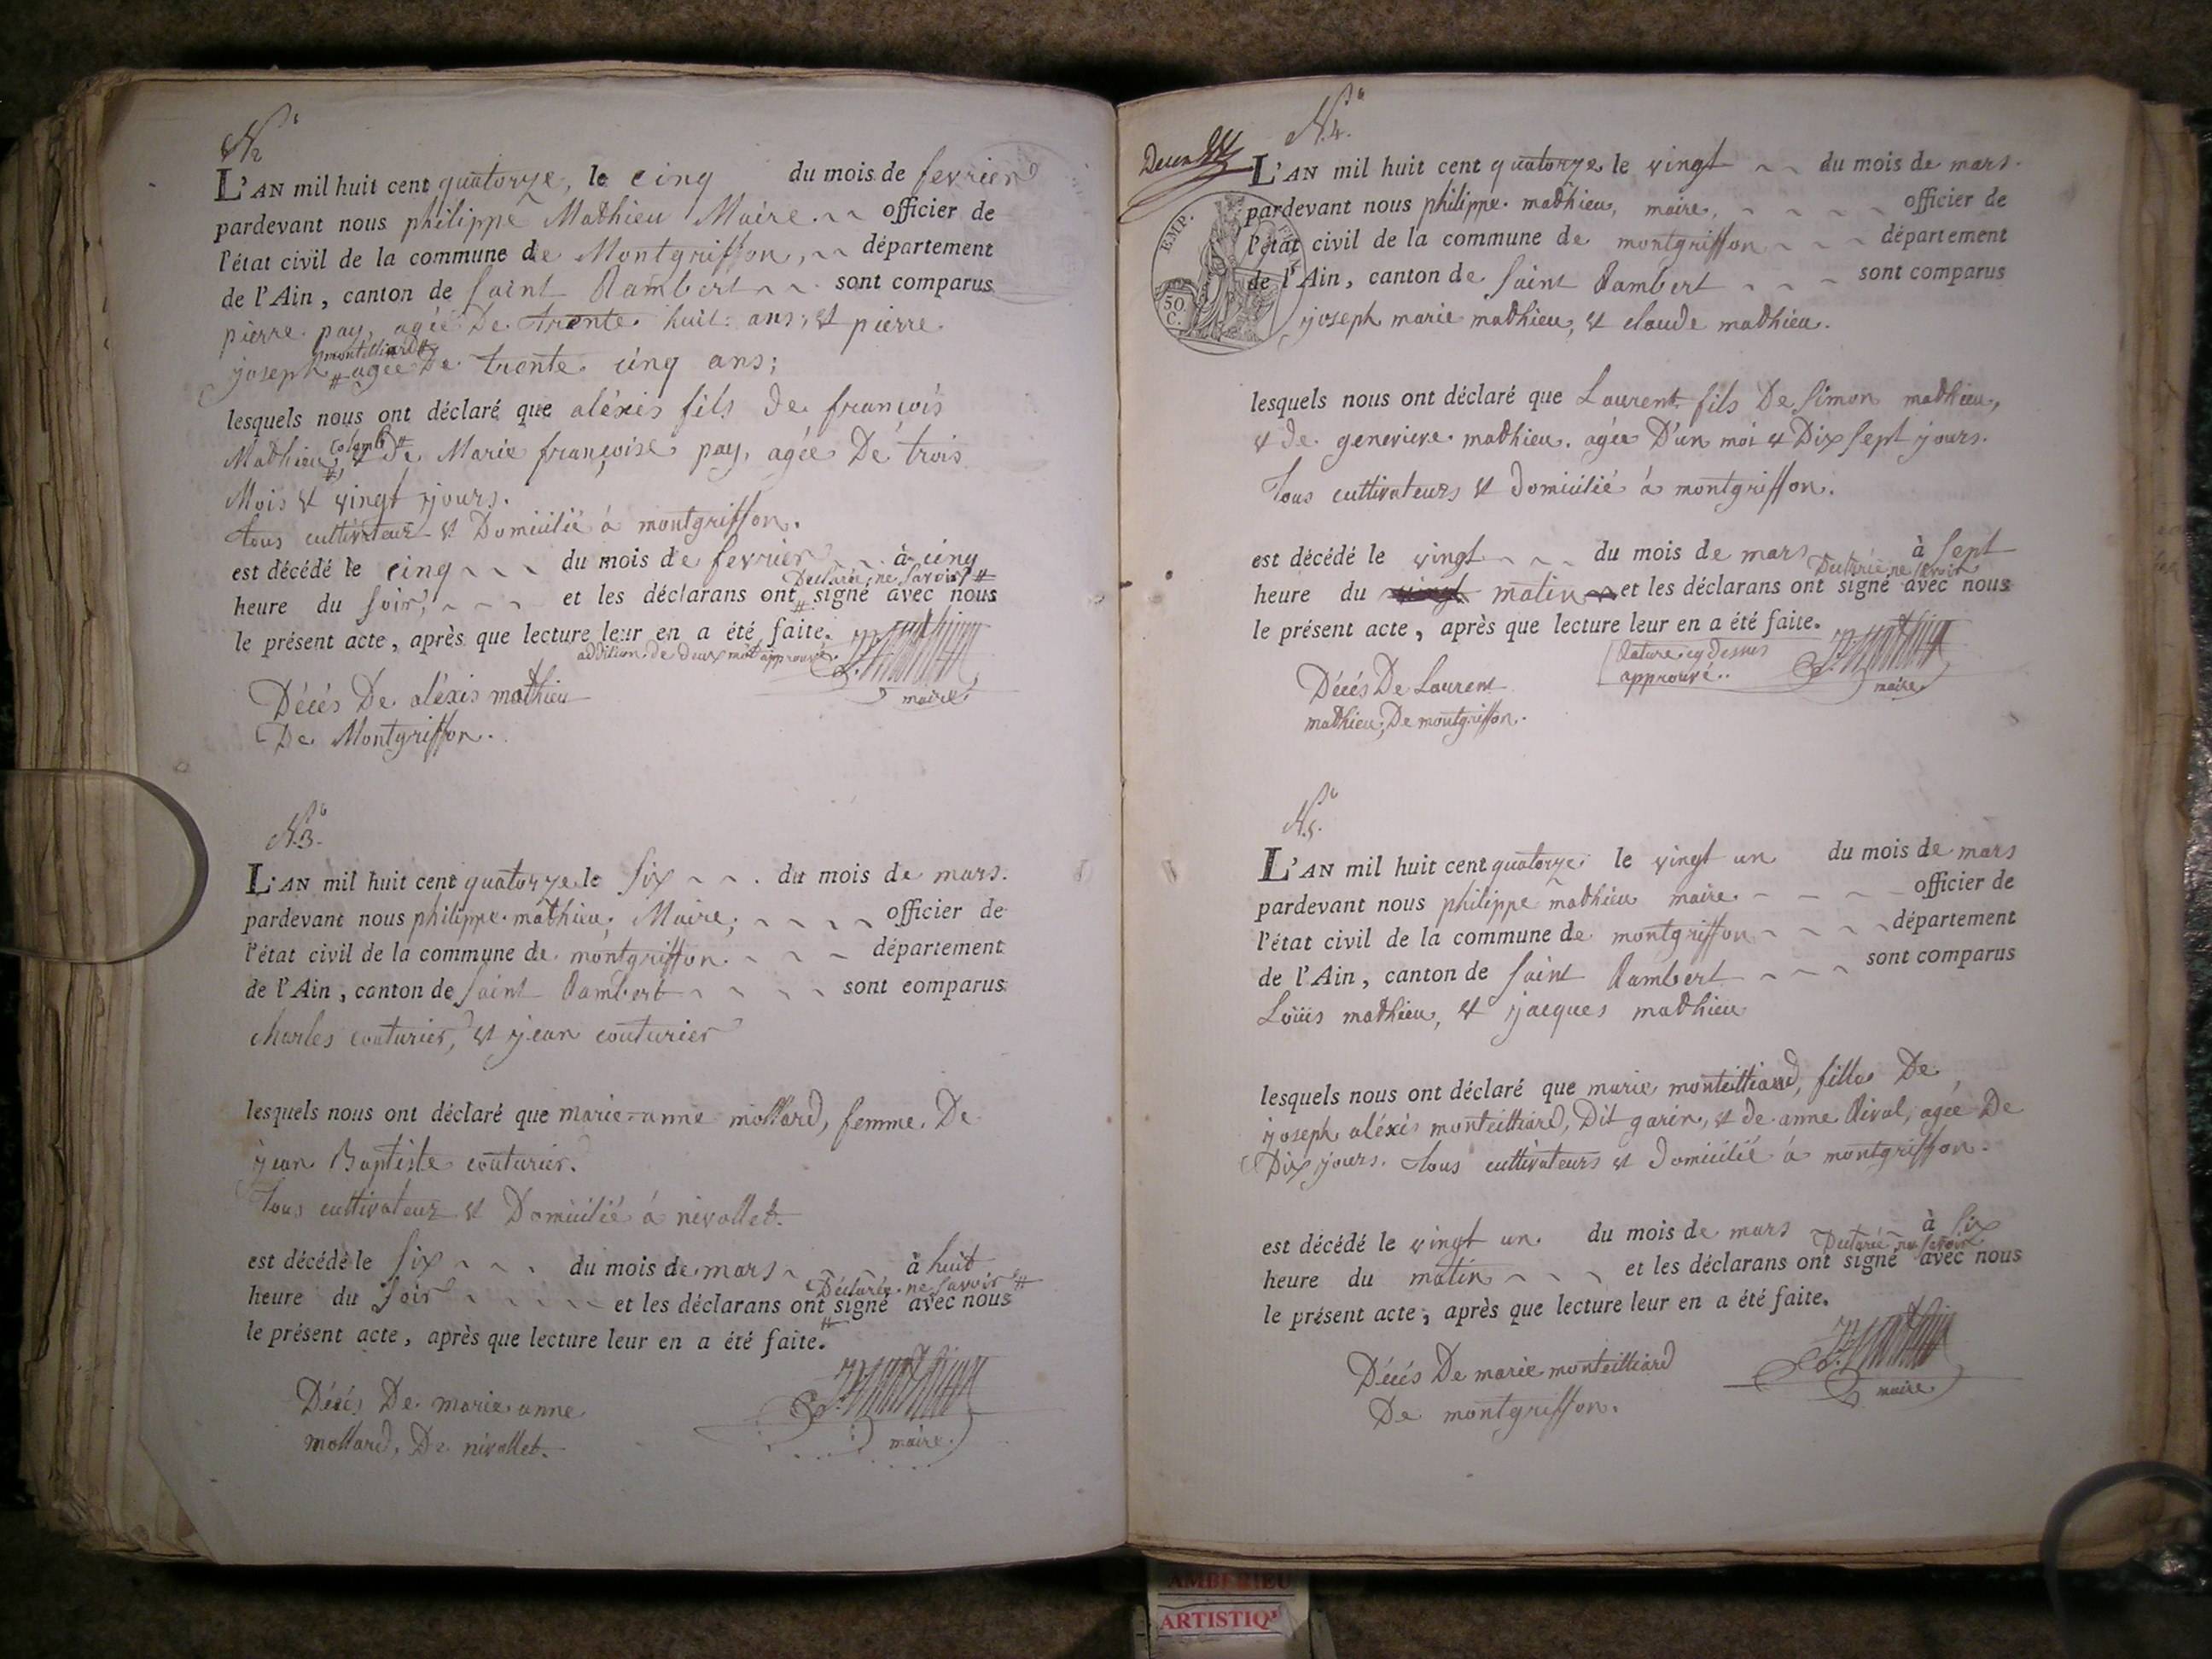 N.° 2
L'AN mil huit cent quatorze, le cinq du mois de fevrier
pardevant nous philippe Mathieu Maire officier de
l'état civil de la commune de Montgriffon, département
de l'Ain, canton de Saint Rambert sont comparus
pierre pay, agée De trente huit ans; et pierre
montilliard #
joseph # agée De trente cinq ans;
lesquels nous ont déclaré que aléxis fils de françois
Colomb #
Mathieu, # et de Marie françoise pay, agée De trois
Mois et vingt jours.
tous cultivateur et Domicilié à montgriffon.
est décédé le cinq du mois de fevrier à cinq
Declarée ne savoir #
heure du soir, et les déclarans ont # signé avec nous
le présent acte, après que lecture leur en a été faite.
addition de deux mot approuvé.
maire
Décés De aléxis mathieu
De Montgriffon.
N.° 3.
L'AN mil huit cent quatorze le six du mois de mars.
pardevant nous philippe mathieu, Maire; officier de
l'état civil de la commune de montgriffon. département
de l'Ain, canton de saint Rambert sont comparus
charles couturier, et jean couturier
lesquels nous ont déclaré que marie-anne mollard, femme De
jean Baptiste couturier.
tous cultivateur et Domicilié à nivollet.
est décédé le six du mois de mars à huit
Déclarée ne savoir #
heure du soir et les déclarans ont # signé avec nous
le présent acte, après que lecture leur en a été faite.
maire.
Décés De marie anne
mollard, De nivollet.
N.° 4.
L'AN mil huit cent quatorze le vingt du mois de mars.
pardevant nous philippe mathieu, maire, officier de
EMP. FRAN.
l'état civil de la commune de montgriffon département
de l'Ain, canton de saint Rambert sont comparus
50 C.
joseph marie mathieu, et claude mathieu.
lesquels nous ont déclaré que Laurent fils De Simon mathieu,
et de genevieve mathieu. agée D'un moi et Dix sept jours.
Tous cultivateurs et domicilié à montgriffon.
est décédé le vingt du mois de mars à sept
Declarée ne savoir
heure du matin et les déclarans ont signé avec nous
le présent acte, après que lecture leur en a été faite.
Rature cy dessus
approuvé..
maire.
Décés De Laurent
mathieu, De montgriffon.
N.° 5.
L'AN mil huit cent quatorze le vingt un du mois de mars
pardevant nous philippe mathieu maire. officier de
l'état civil de la commune de montgriffon département
de l'Ain, canton de saint Rambert sont comparus
Loüis mathieu, et jacques mathieu
lesquels nous ont déclaré que marie monteilliard, fille De
joseph aléxis monteilliard, Dit garin, et de anne Rival, agée De
Dix jours. tous cultivateurs et domicilié à montgriffon.
est décédé le vingt un. du mois de mars à six
Declarée ne savoir
heure du matin et les déclarans ont signé avec nous
le présent acte, après que lecture leur en a été faite.
maire.
Décés De marie monteilliard
De montgriffon.
AMBERIEU
ARTISTIQ